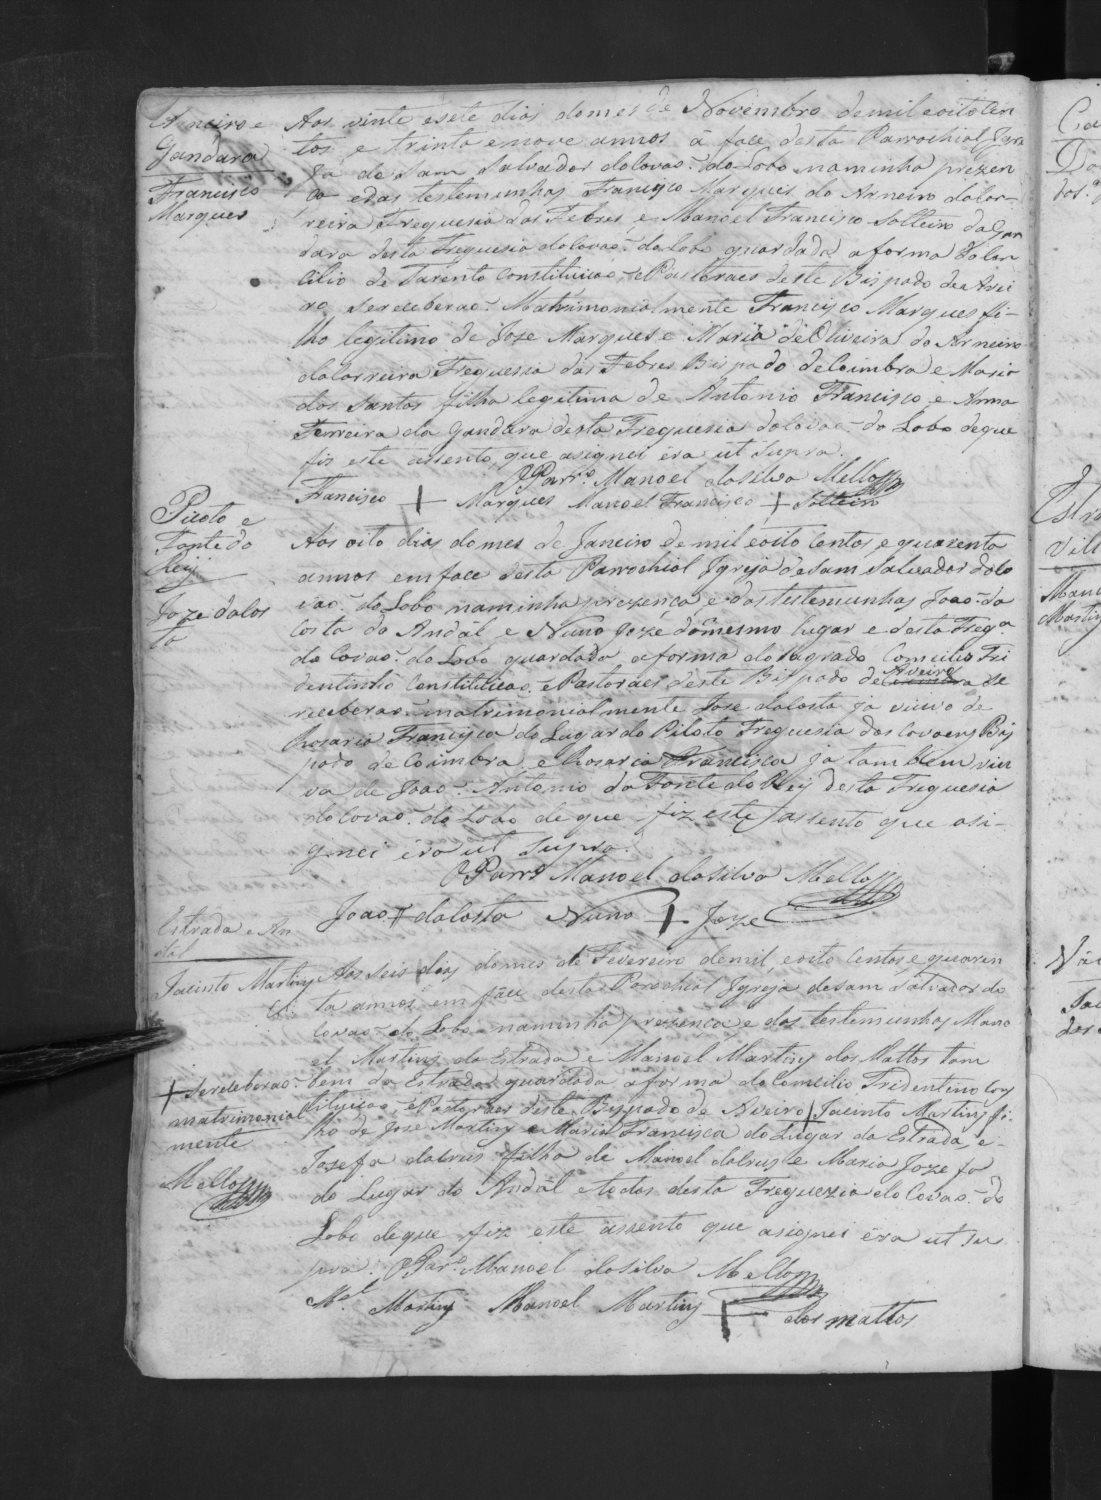 Arneiro e
Gandara
Francisco
Marques
Aos vinte esete dias domes de Novembro demil eoitocen
tos e trinta enove annos â face desta Parrochial Igre
ja de Sam Salvador doCovaõ do Lobo naminha prezen
ca edas testemunhas Francisco Marques do Arneiro daCor-
reira Freguesia das Febres, e Manoel Francisco Solteiro da Gan
dara desta Freguesia doCovaõ do Lobo guardada aforma do Con
cilio de Tarento Constituicao e Pastoraes deste Bispado de Avei
ro Sereceberaõ Matrimonialmente Francisco Marques fi-
lho legitimo de Joze Marques e Maria de Oliveira do Arneiro
daCorreira Freguesia das Febres Bispado deCoimbra e Maria
dos Santos filha legitima de Antonio Francisco e Anna
Ferreira da Gandara desta Freguesia doCovaõ do Lobo deque
fis este assento que asignei era ut Supra.
O Parr.º Manoel daSilva Mello
Francisco + Marques Manoel Francisco + Solteiro
Picoto e
Fonte do
Rey
Joze daCos
ta
Aos oito dias domes de Janeiro de mil eoito Centos e quarenta
annos emface desta Parrochial Igreja deSam Salvador doCo
vaõ do Lobo naminha prezenca e das testemunhas Joaõ da
Costa do Andál e Nuno Jozé do mesmo lugar e desta Freg.ª
do Covaõ do Lobo guardada aforma do Sagrado Concilio Tri
dentinho Constituicao e Pastoraes deste Bispado de Coimbra Aveiro Se
receberaõ matrimonialmente Joze daCosta ja viuvo de
Rosaria Francisca do Lugar do Picoto Freguesia dos Covoens Bis
pado de Coimbra e Rosaria Francisca ja tambem viu
va de Joaõ Antonio da Fonte do Rey desta Freguesia
doCovaõ do Lobo de que fiz este assento que asi-
gnei éra ut Supra.
O Parr.º Manoel daSilva Mello
Joaõ + daCosta Nuno + Joze
Estrada e An
dál
Jacinto Martins
Aos Seis dias domes de Fevereiro demil eoito Centos e quaren
ta annos em face desta Parochial Igreja deSam Salvador do
Covaõ do Lobo naminha prezenca e das testemunhas Mano
el Martins da Estrada e Manoel Martins dos Mattos tam
bem da Estrada guardada aforma doConcilio Tridentino Cons
tituicao, e Pastoraes deste Bispado de Aveiro + Jacinto Martins fi
lho de Jose Martins e Maria Francisca do Lugar da Estrada, e
Josefa daCrus filha de Manoel daCrus e Maria Joze fa
do Lugar do Andál etodos desta Freguezia do Covaõ do
Lobo deque fiz este assento que asignei éra ut Su
pra. O Par.º Manoel daSilva Mello
M.el Martins Manoel Martins + dos mattos
+ Sereceberaõ
matrimonial
mente
Mello